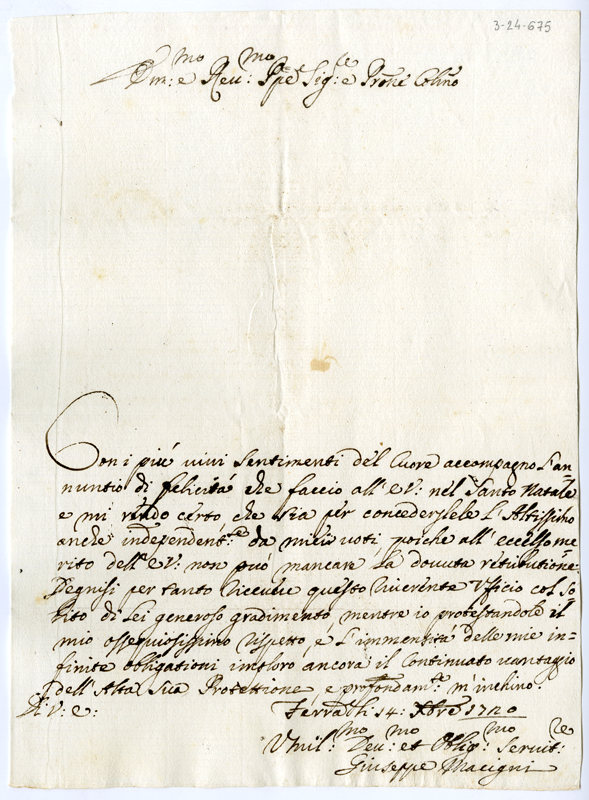 3-24-675
Em:mo e Reu:mo Ppe Sig:re e Prone Colmo
Con i piú viui sentimenti del Cuore accompagno l'an
nuntio di felicitá che faccio all' E V: nel Santo Natale
e mi rendo certo che sia per concedersele l'Altissimo
anche independent:te da miei uoti, poiche all' eccelso me
rito dell' E V: non puó mancare la douuta retributione.
Degnisi per tanto riceuere questo riuerente Vfficio col so
lito di Lei generoso gradimento mentre io protestandole il
mio ossequiosissimo rispetto, e l'immensità delle mie in=
finite obligationi imploro ancora il Continuato uantaggio
dell' Alta Sua Protettione e profondam:te m'inchino.
A V: E:
Ferra li 14: Xbre 1720
Vmil:mo Deu:mo et Oblig:mo Seruit:re
Giuseppe Macigni